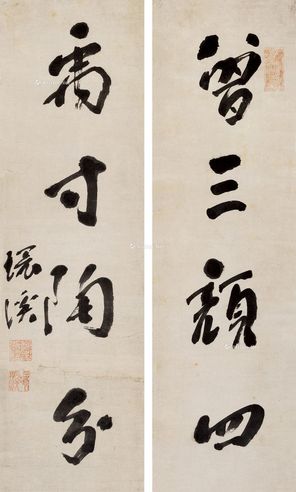 曾三顏四
禹寸陶分
環溪